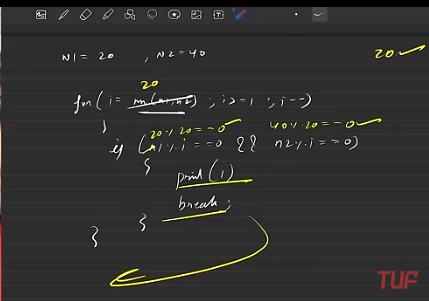 N1 = 20 , N2 = 40
20 ✓
20
for( i = min(n1,n2) ; i>=1 ; i--)
{
20 % 20 == 0 ✓ 40 % 20 == 0 ✓
if (n1 % i == 0 && n2 % i == 0)
{
print(i)
break;
}
}
TUF